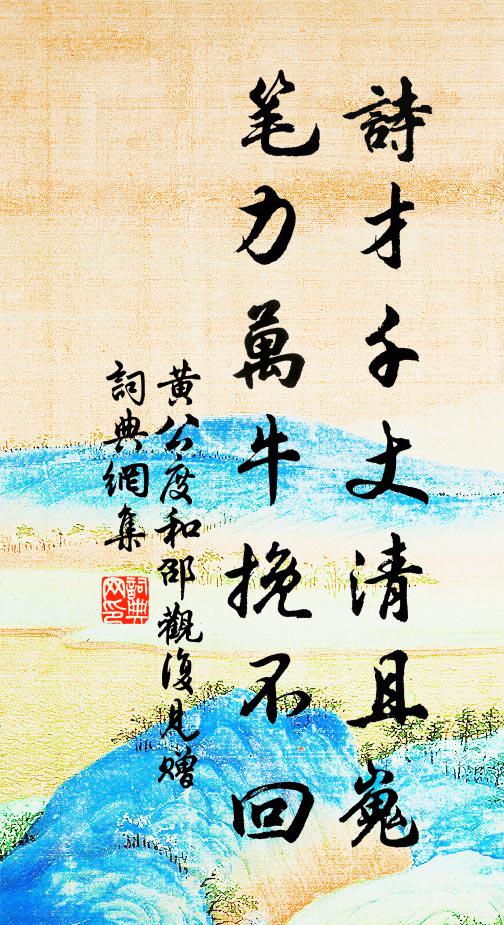 詩才千丈清且嵬
笔力萬牛挽不回
黄公度和邵觀復見贈
詞典網集
詞典网印